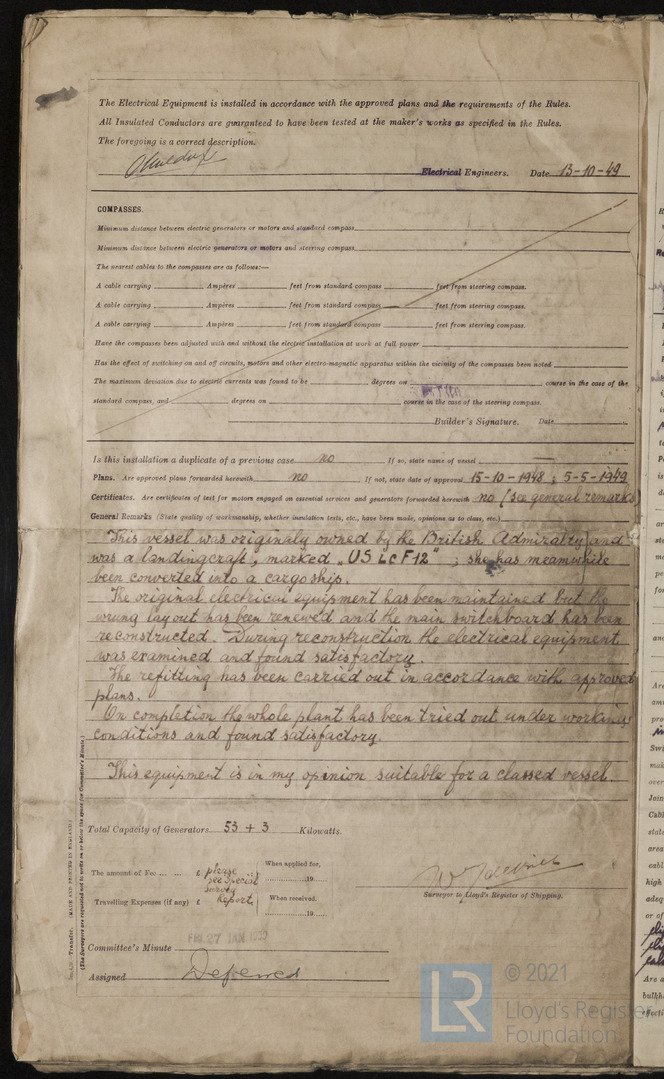 The Electrical Equipment is installed in accordance with the approved plans and the requirements of the Rules.
All Insulated Conductors are guaranteed to have been tested at the maker's works as specified in the Rules.
The foregoing is a correct description.
Electrical Engineers. Date 13-10-49
COMPASSES.
Minimum distance between electric generators or motors and standard compass
Minimum distance between electric generators or motors and steering compass
The nearest cables to the compasses are as follows:—
A cable carrying Ampères feet from standard compass feet from steering compass.
A cable carrying Ampères feet from standard compass feet from steering compass.
A cable carrying Ampères feet from standard compass feet from steering compass.
Have the compasses been adjusted with and without the electric installation at work at full power
Has the effect of switching on and off circuits, motors and other electro-magnetic apparatus within the vicinity of the compasses been noted
The maximum deviation due to electric currents was found to be degrees on course in the case of the
standard compass, and degrees on course in the case of the steering compass.
Builder's Signature. Date
Is this installation a duplicate of a previous case no If so, state name of vessel —
Plans. Are approved plans forwarded herewith no If not, state date of approval 15-10-1948 ; 5-5-1949
Certificates. Are certificates of test for motors engaged on essential services and generators forwarded herewith no (see general remarks)
General Remarks (State quality of workmanship, whether insulation tests, etc., have been made, opinions as to class, etc.)
This vessel was originaly owned by the British Admiralty and
was a landingcraft, marked „US LCF12" ; she has meamwhile
been converted into a cargoship.
The original electrical equipment has been maintained but the
wirung lay out has been renewed and the main switchboard has been
reconstructed. During reconstruction the electrical equipment
was examined and found satisfactory.
The refitting has been carried out in accordance with approved
plans.
On completion the whole plant has been tried out under working
conditions and found satisfactory.
This equipment is in my opinion suitable for a classed vessel.
Total Capacity of Generators 53 + 3 Kilowatts.
The amount of Fee £ please see Special Survey Report,
When applied for, 19
Travelling Expenses (if any) £
When received, 19
Surveyor to Lloyd's Register of Shipping.
Committee's Minute FRI 27 JAN 1950
Assigned Deferred
(MADE AND PRINTED IN ENGLAND.)
(The Surveyors are requested not to write on or below the space for Committee's Minute.)
LR
© 2021
Lloyd's Register
Foundation